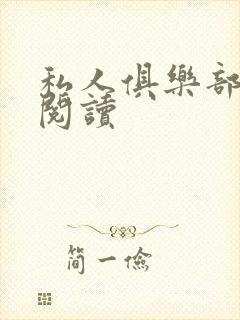 私人俱樂部
閱讀
簡一儉